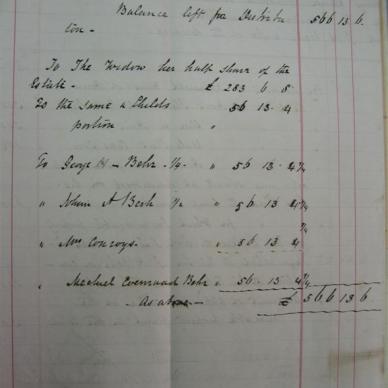 Balance left for Distribu 566 13 6
tion -
To The Widow her half share of the
Estate - £ 283 6 8
To the same a Childs 56 13 4
portion "
To George H - Behr - ¼ - " 56 13 4¼
" Johan A Behr " 56 13 4¼
" Mrs Conroys - " 56 13 4 ¼
" Michael Behr " 56 13 4¼
As above - £ 566 13 6